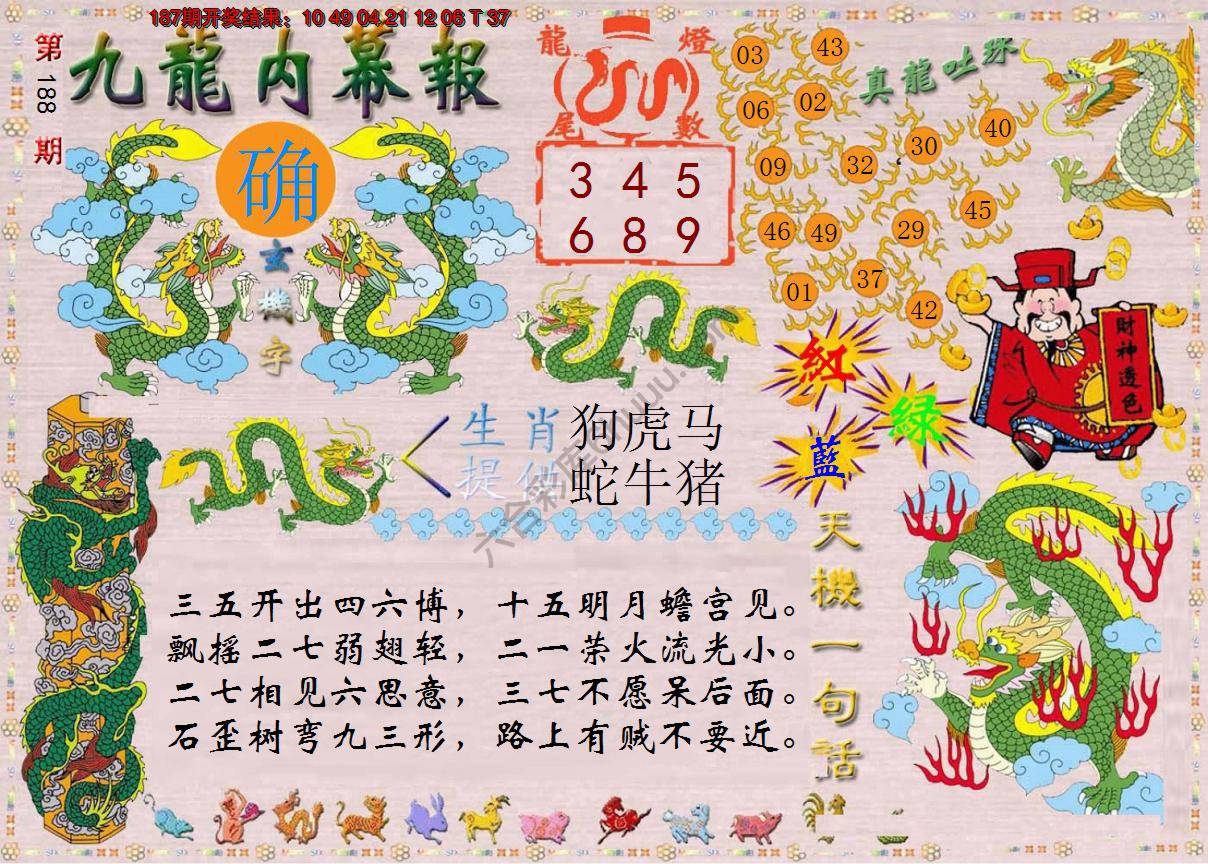 187期开奖结果：10 49 04 21 12 06 T 37
第188期
九龍内幕報
确
玄機字
龍燈
尾數
3 4 5
6 8 9
真龍吐珠
03
43
06
02
09
32
30
40
46
49
29
45
01
37
42
財神透色
紅
綠
藍
生肖
提供
狗虎马
蛇牛猪
天機一句話
三五开出四六博，十五明月蟾宫见。
飘摇二七弱翅轻，二一荣火流光小。
二七相见六思意，三七不愿呆后面。
石歪树弯九三形，路上有贼不要近。